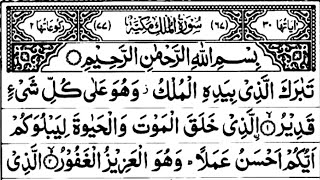 اٰیَاتُهَا ٣٠ (٦٧) سُوْرَةُ الْمُلْكِ مَكِّیَّةٌ (٧٧) رُكُوْعَاتُهَا ٢
بِسْمِ اللّٰهِ الرَّحْمٰنِ الرَّحِیْمِ
تَبٰرَكَ الَّذِیْ بِیَدِهِ الْمُلْكُ ز وَهُوَ عَلٰی كُلِّ شَیْءٍ
قَدِیْرُ ۙ﴿۱﴾ الَّذِیْ خَلَقَ الْمَوْتَ وَالْحَیٰوةَ لِیَبْلُوَكُمْ
اَیُّكُمْ اَحْسَنُ عَمَلًا ؕ وَهُوَ الْعَزِیْزُ الْغَفُوْرُ ۙ﴿۲﴾ الَّذِیْ